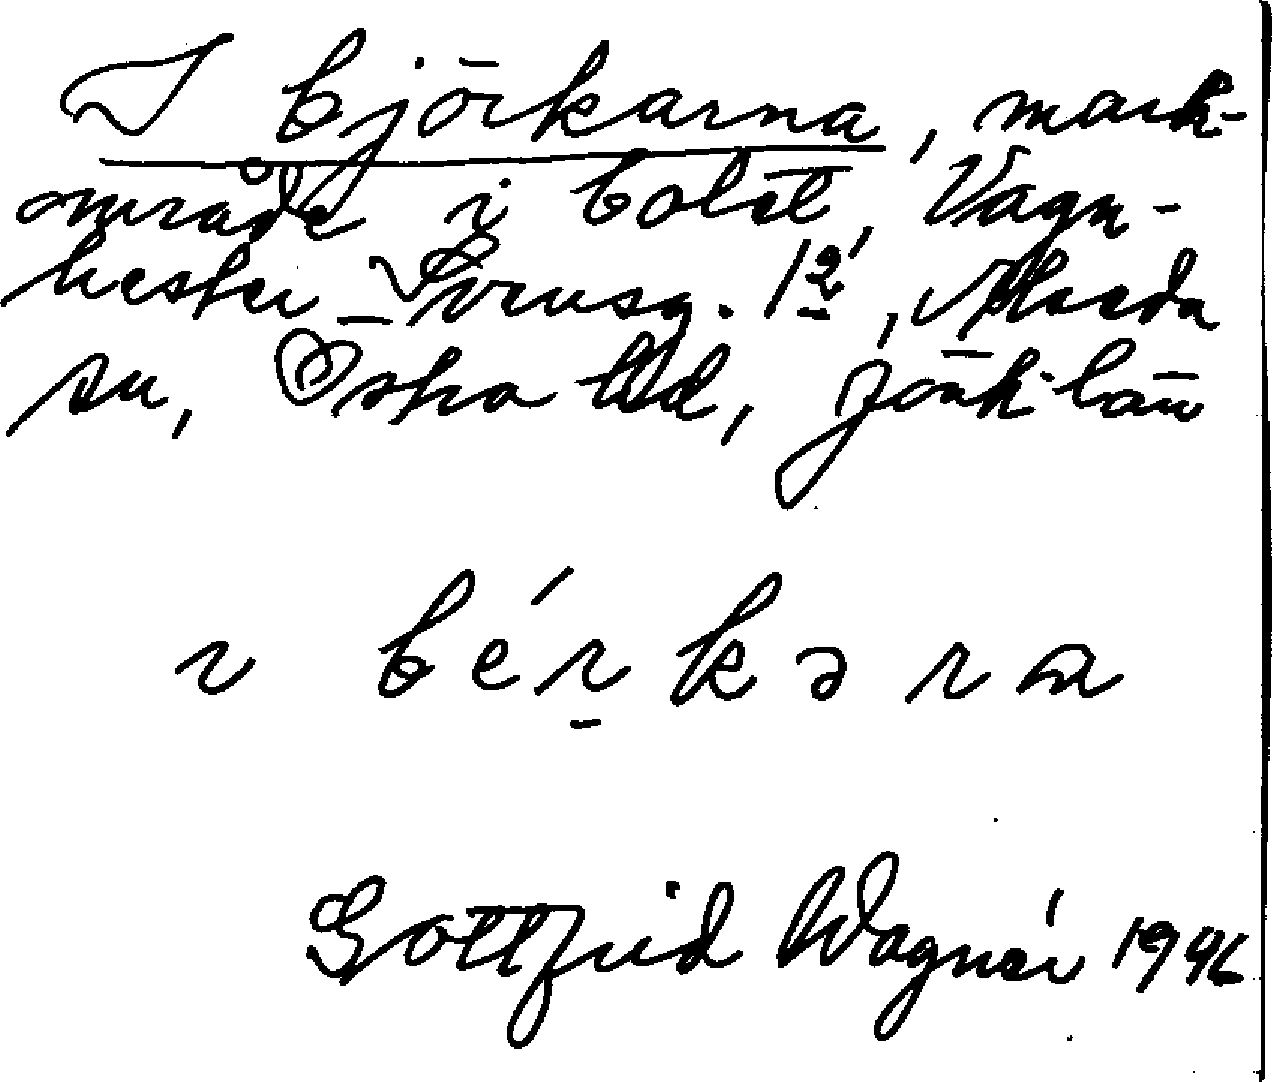 I björkarna, mark-
område i bolet, Vagn-
hester Brusg. 1², Alseda
sn, Östra hd, Jönk-län
ɩ bérkəra
Gottfrid Wagnér 1946